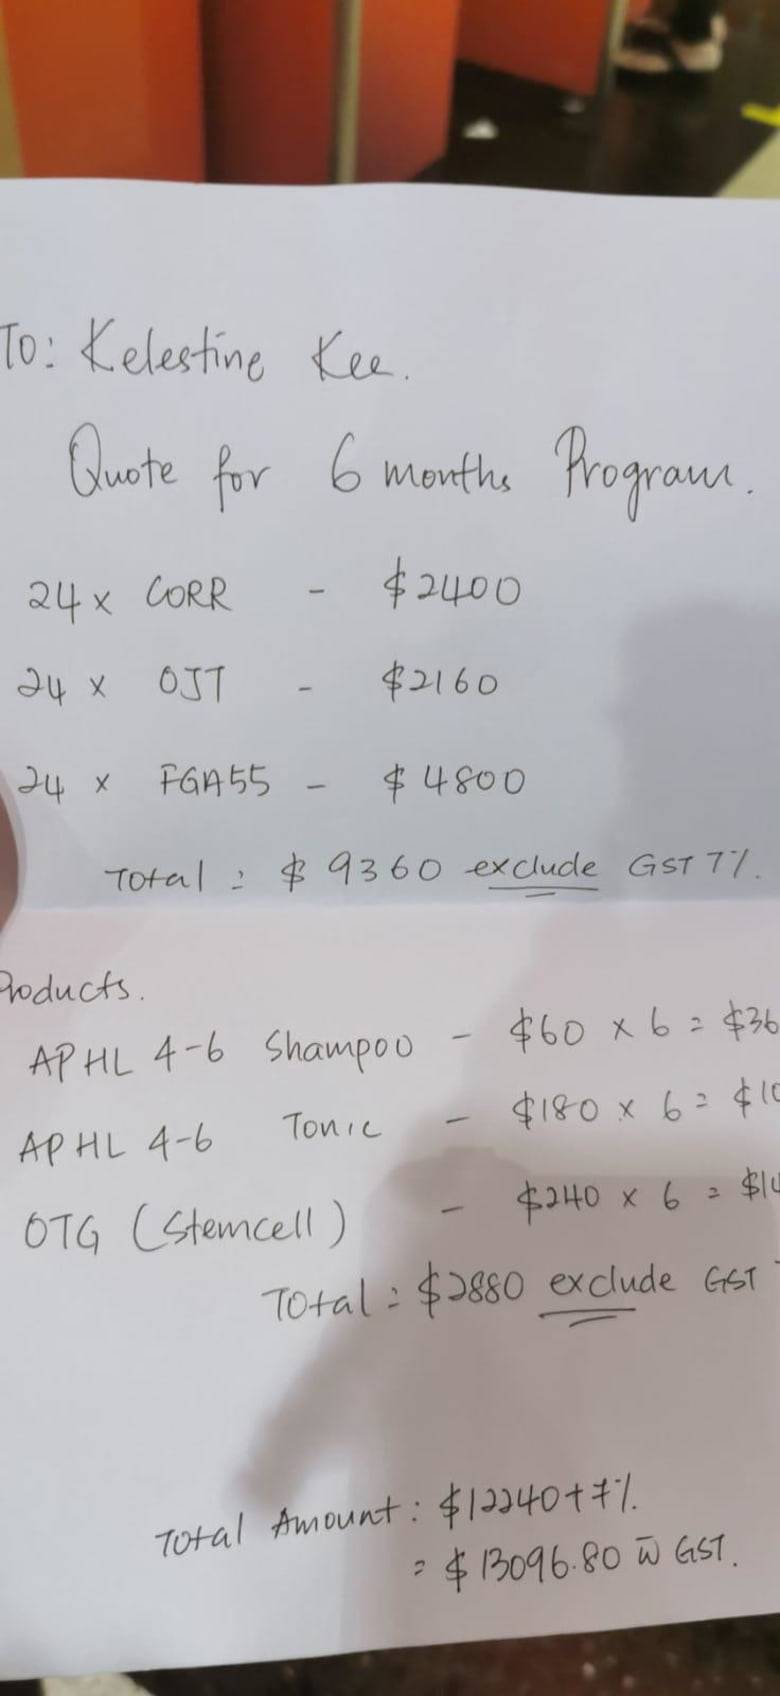 To: Kelestine Kee.
Quote for 6 months Program.
24 x CORR - $2400
24 x OJT - $2160
24 x FGA55 - $4800
Total : $ 9360 exclude GST 7%.
Products.
APHL 4-6 Shampoo - $60 x 6 = $36
APHL 4-6 Tonic - $180 x 6 = $10
OTG (Stemcell) - $240 x 6 = $14
Total : $2880 exclude GST
Total Amount : $12240 + 7%.
= $13096.80 w̄ GST.